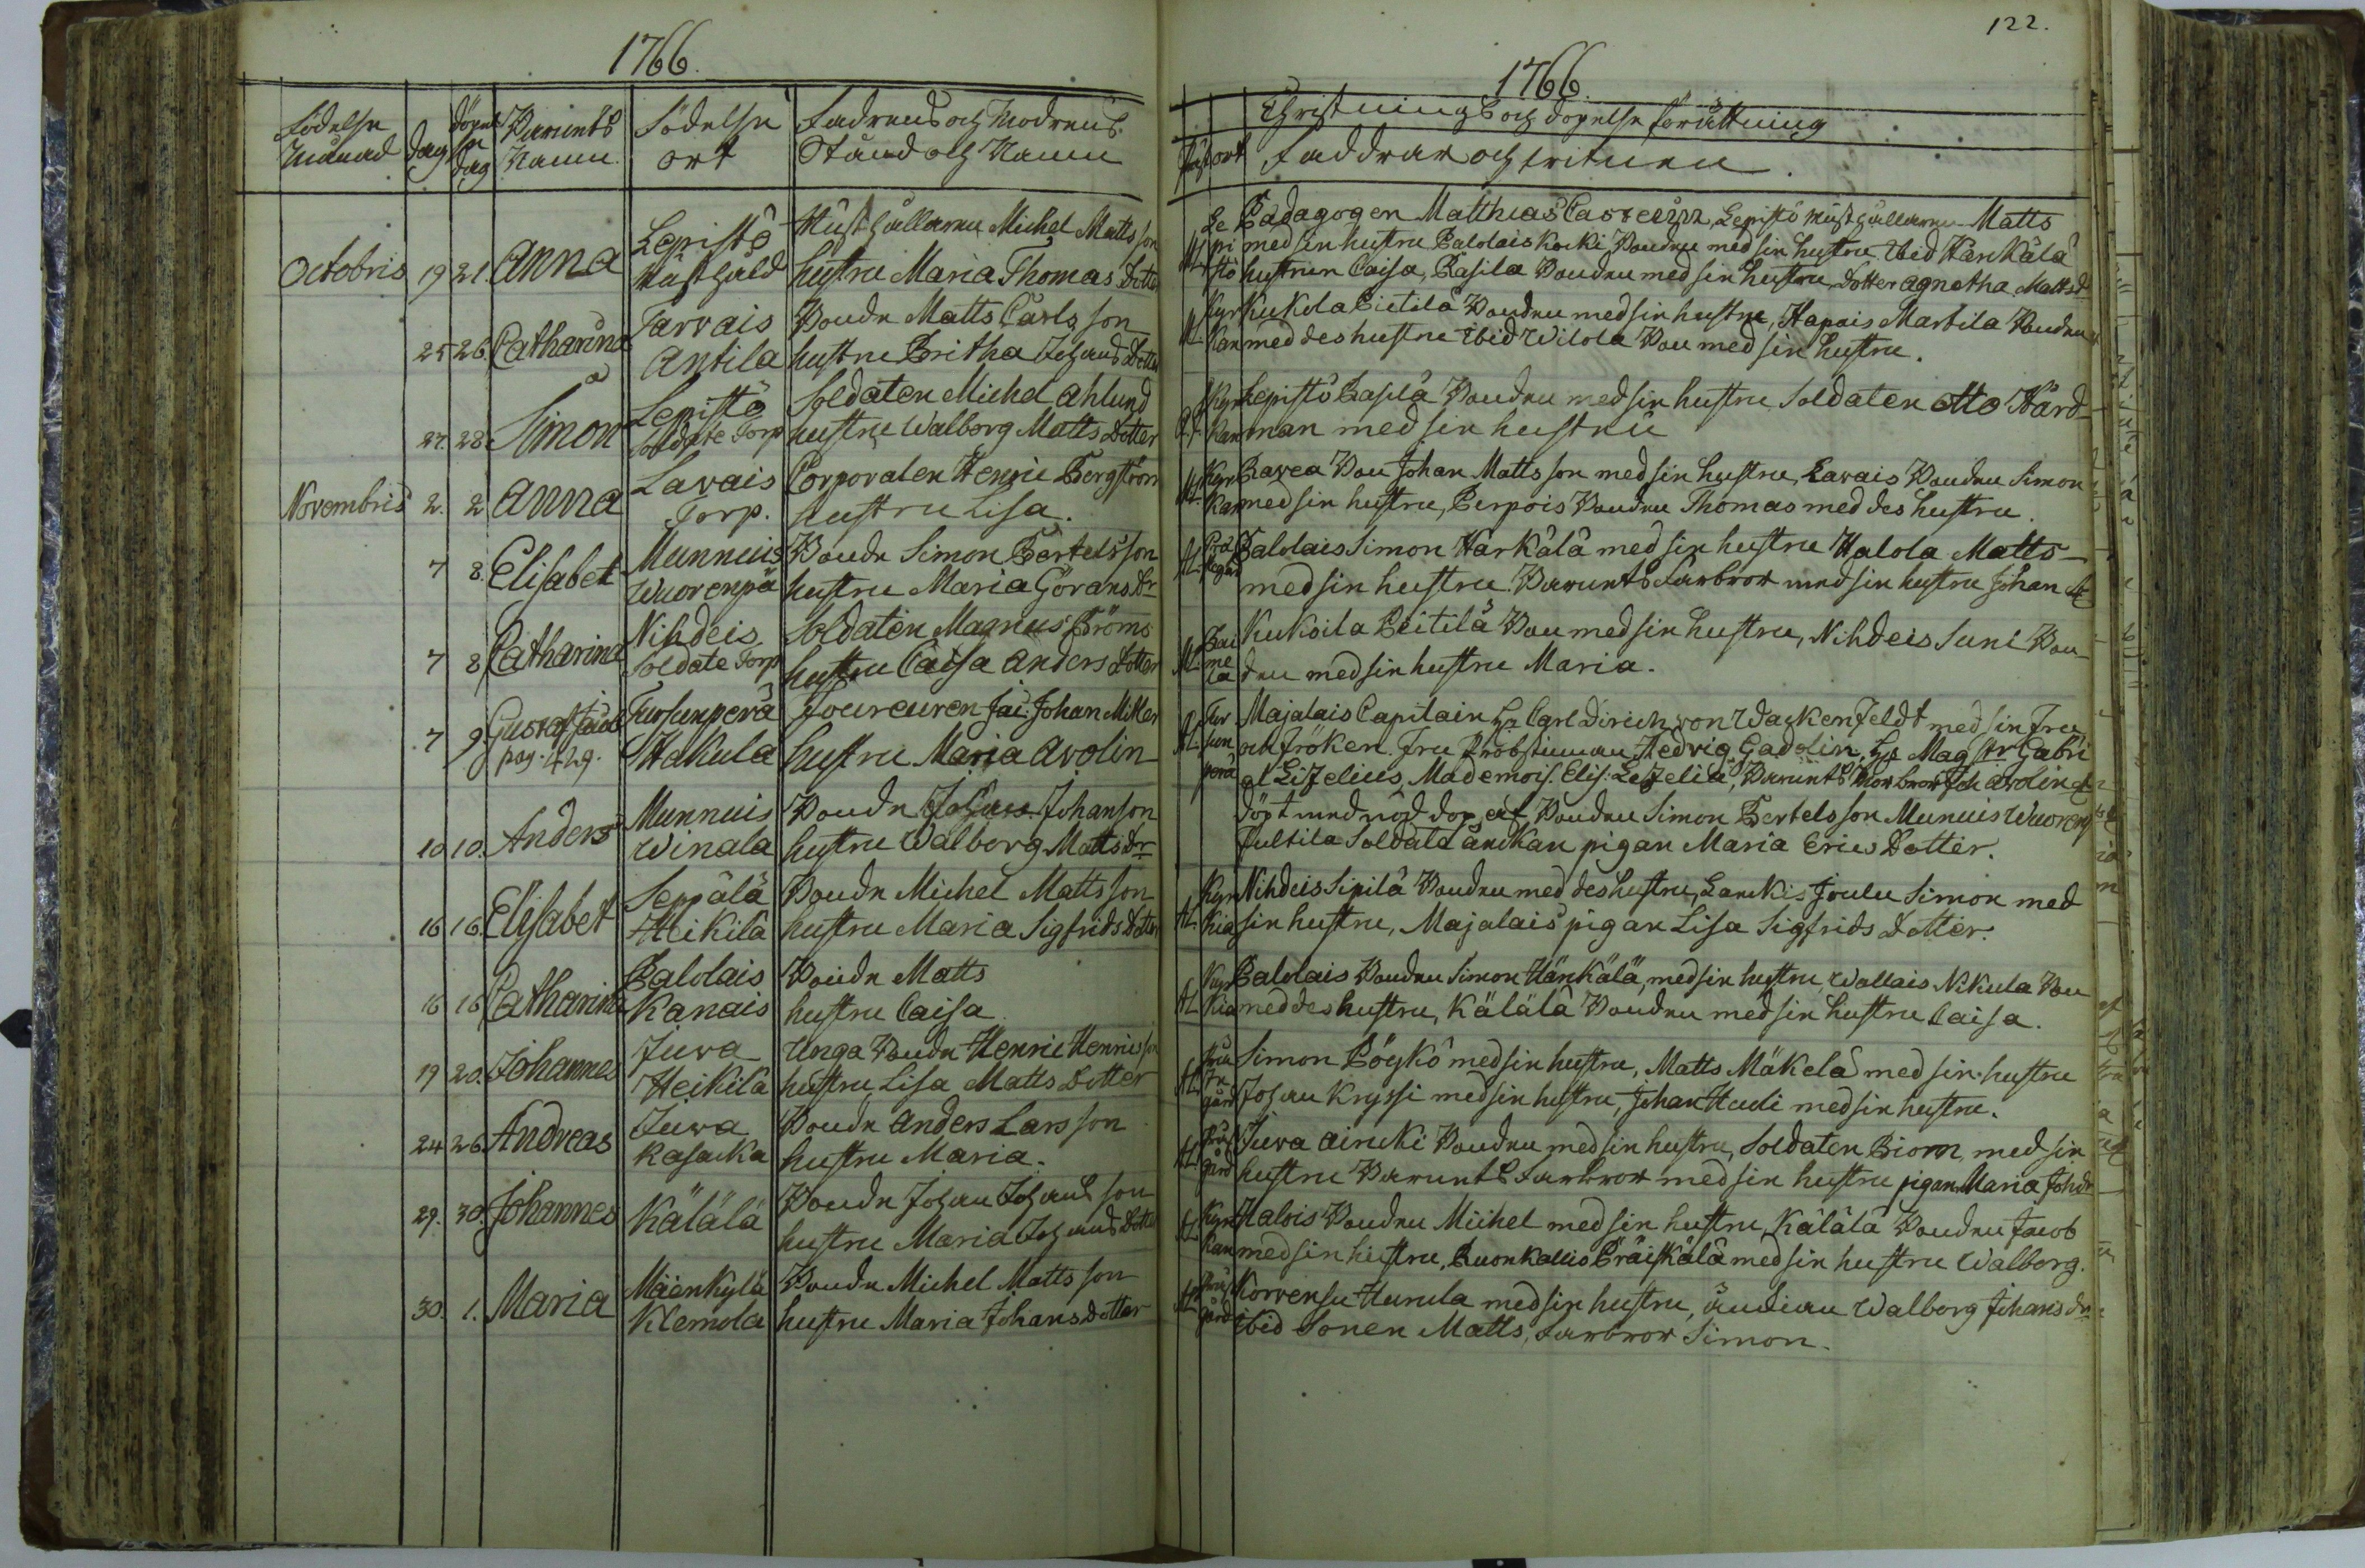 1766.
Födelse Månad
dag
döpelse dag
Barnets Namn
Födelse ort
Fadrens och Modrens Stånd och Namn
Octobris 19 21. Anna Lepistö Husthåld
Husthållaren Michel Mattsson
hustru Maria Thomas Dotter
25 26. Catharina Tarvais Antila
Bonde Matts Carlsson
hustru Britha Johans Dotter
27. 28. Simon Lepistö Soldate Torp
Soldaten Michel Ahlund
hustru Walborg Matts Dotter
Novembris 2. 2 Anna Lavais Torp.
Corporalen Henric Bergström
hustru Lisa.
7 8. Elisabet Munnuis Wuorenpä
Bonde Simon Bertelsson
hustru Maria Görans Dr
7 8 Catharina Nihdeis Soldate Torp
Soldaten Magnus Bröms
hustru Caisa Anders Dotter
7 9. Gustaf Jacob pag. 429. Tursunperä Hakula
Foureuren Jac: Johan Miller
hustru Maria Avolin
10 10. Anders Munnuis Winala
Bonde Johan Johanson
hustru Walborg Matts Dr
16 16. Elisabet Seppälä Heikilä
Bonde Michel Mattsson
hustru Maria Sigfrids Dotter
16 16 Catharina Palolais Kanais
Bonde Matts
hustru Caisa
19 20. Johannes Juva Heikila
Unga Bonde Henric Henricsson
hustru Lisa Matts Dotter
24 26 Andreas Juva Rasacka
Bonde Anders Larsson
hustru Maria.
29. 30. Johannes Kälälä
Bonde Johan Johansson
hustru Maria Johans Dotter
30. 1. Maria Mäenkylä Klemola
Bonde Michel Mattsson
hustru Maria Johans dotter
122.
1766.
Christnings och döpelse förrättning
ort Faddrar och vitnen.
Lepistö Pædagogen Matthias Castrenn, Lepistö Husthållaren Matts
med sin hustru Palolais Kocki Bonden med sin hustru ibid Hänkälä
hustrun Caisa, Rasila Bonden med sin hustru, Dotter Agnetha Mattsd
Kyrkan Kukola Pietilä Bonden med sin hustru, Hapais Martila Bonden
med des hustru ibid Wilola Bon med sin hustru.
Kyrkan Lepistö Rasila Bonden med sin hustru Soldaten Otto Hård
man med sin hustru
Kyrkan Pavea Bon Johan Mattsson med sin hustru, Lavais Bonden Simon
med sin hustru, Perpois Bonden Thomas med des hustru.
Palolais Simon Härkälä med sin hustru Halola Matts
med sin hustru. Barnets Farbror med sin hustru Johan
Paumela Kukoila Peitilä Bon med sin hustru, Nihdeis Juni Bon
den med sin hustru Maria.
Tursunperä Majalais Capitain Hr Carl Dirich von Wackenfeldt med sin Fru
och fröken. Fru Probstinnan Hedvig Gadolin, Hr Magstr Gabri
el Lizelius, Mademois. Elis: Lezelia, Barnets Morbror Joh Avolin
döpt med nöd dop af Bonden Simon Bertelsson Munuis Wuorenp
Pultila Soldate änckan pigan Maria Erics Dotter.
Kyrkia Nihdeis Sipilä Bonden med des hustru, Lanckis Joulu Simon med
sin hustru, Majalais pigan Lisa Sigfrids Dotter.
Kyrkia Palolais Bonden Simon Hänkälä, med sin hustru, Wallais Nikula Bon
med des hustru, Kälälä Bonden med sin hustru Caisa.
Simon Pöykö med sin hustru, Matts Mäkelä med sin hustru
Johan Kryssi med sin hustru, Johan Heudi med sin hustru.
Juva Aincki Bonden med sin hustru, Soldaten Biorn, med sin
hustru Barnets Farbror med sin hustru pigan Maria Johdr
Kyrkan Halois Bonden Michel med sin hustru, Kälälä Bonden Jacob
med sin hustru, Ruonkallio Präiskälä med sin hustru Walborg.
Korvensu Hurula med sin hustru, änckian Walborg Johansdr
ibid Sonen Matts, Farbror Simon.